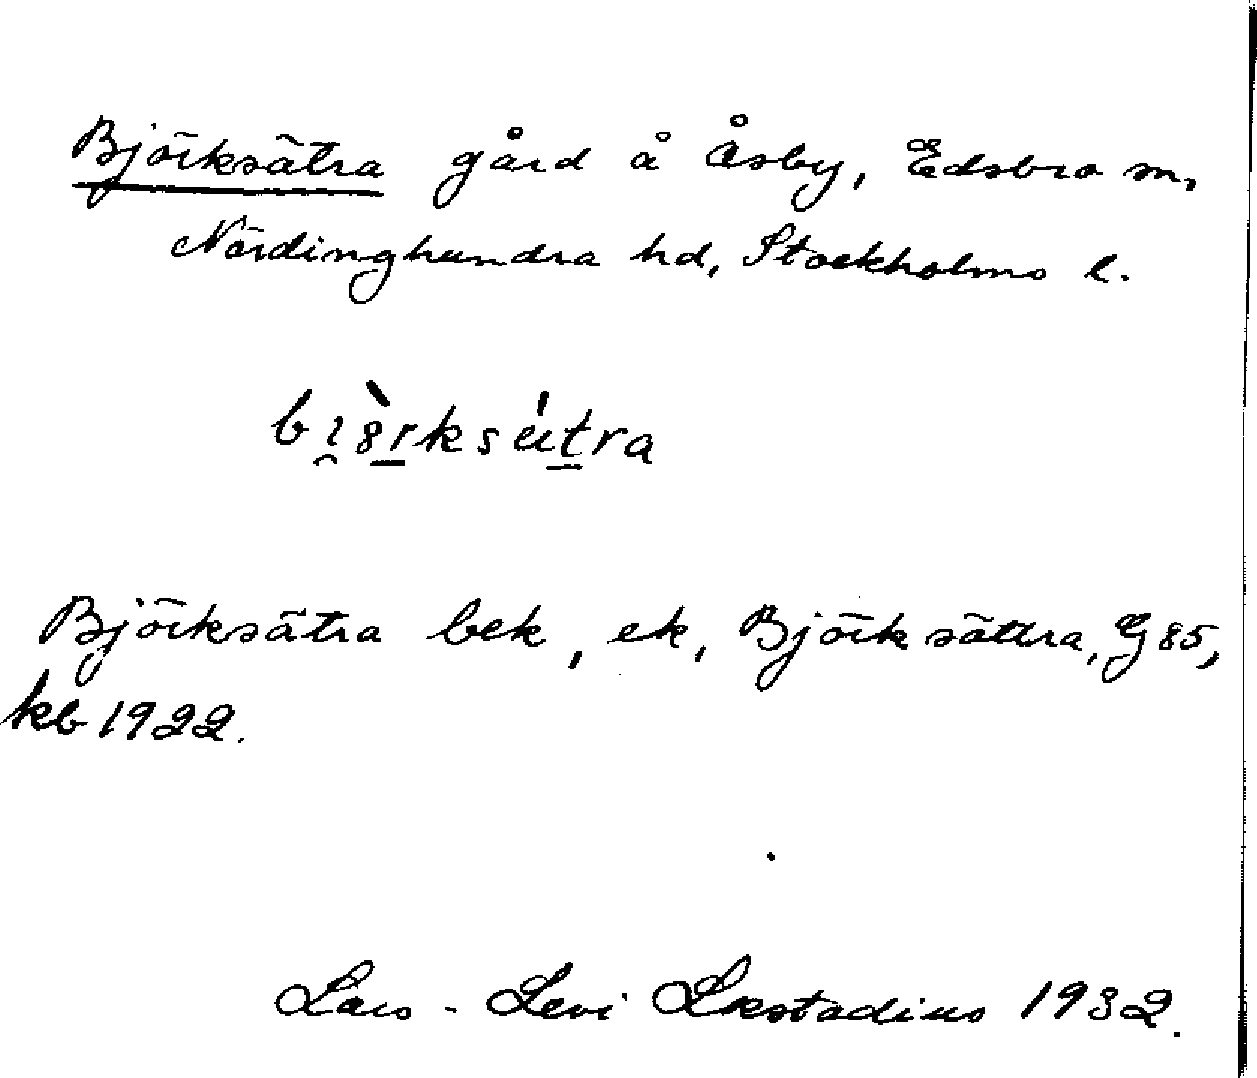 Björksätra gård å Åsby, Edsbro sn,
Närdinghundra hd, Stockholms l.
Björksätra bek, ek, Björksättra, G 85,
kb 1922.
Lars-Levi Læstadius 1932.